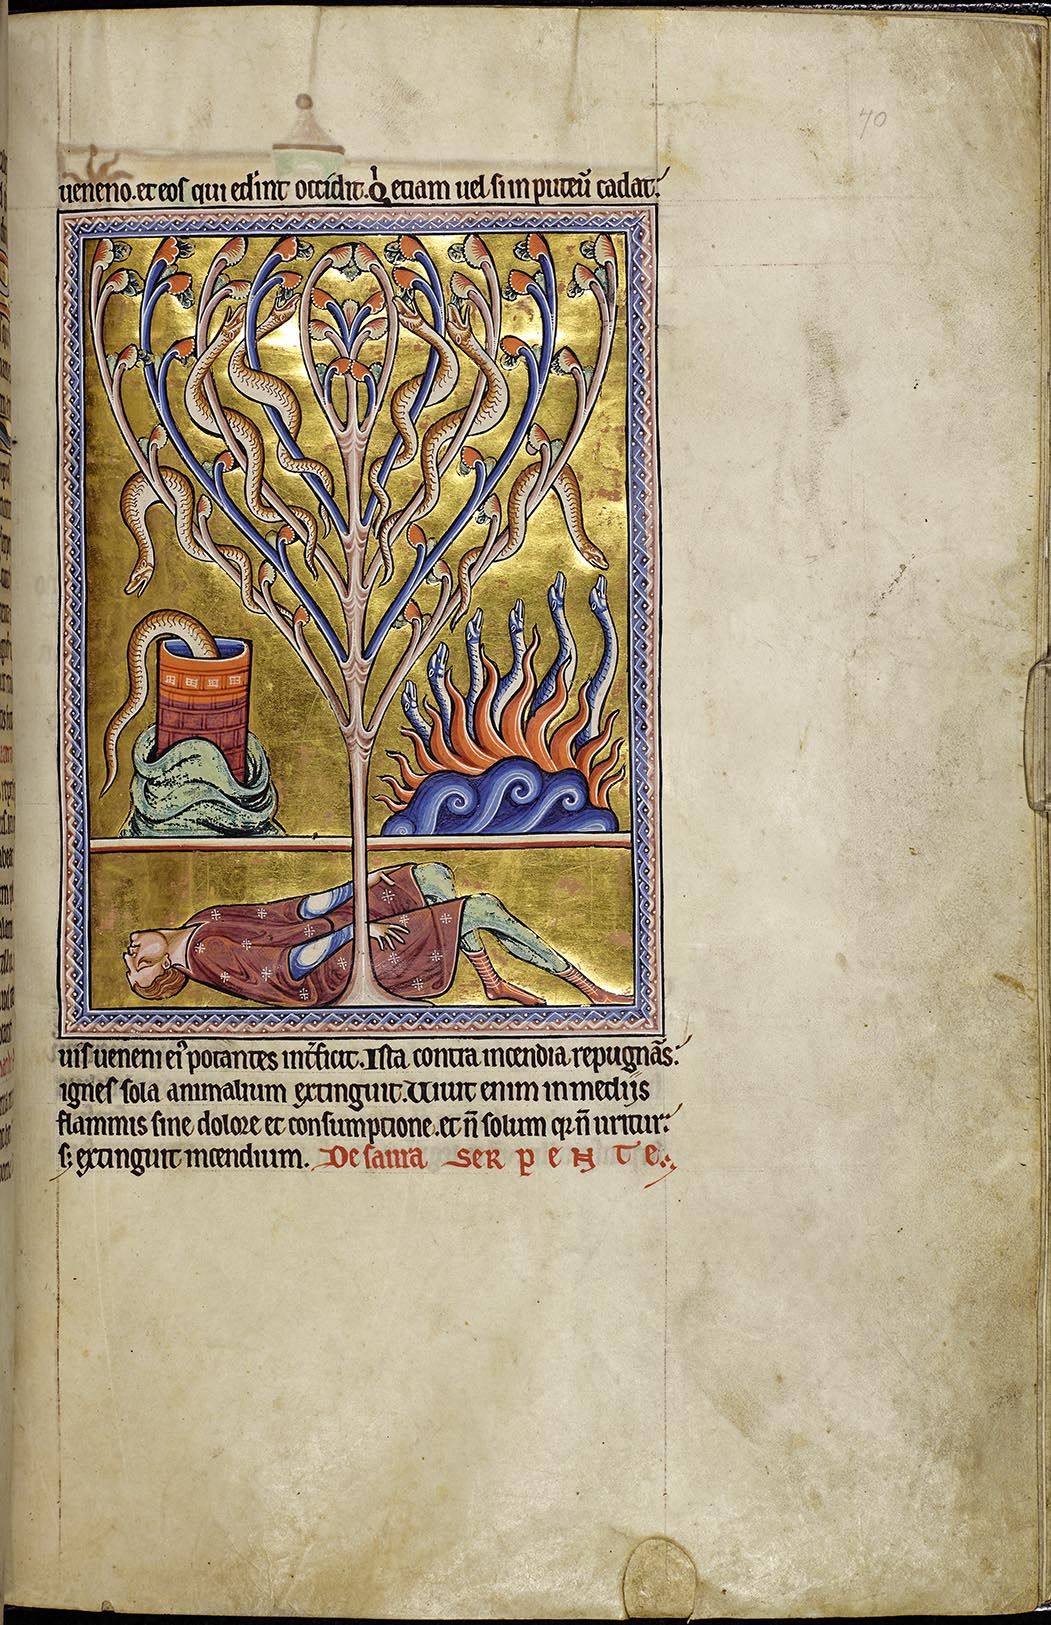 70
ueneno. et eos qui ed͛int occidit. Q̇ etiam uel si in puteū cadat:
uis ueneni ei᷒ potantes int͛ficit. Ista contra incendia repugnās:
ignes sola animalium extinguit. Uiuit enim in mediis
flammis sine dolore et consumptione. et n̄ solum qꝛ n̄ uritur:
s; extinguit incendium. De saura SERPENTE.